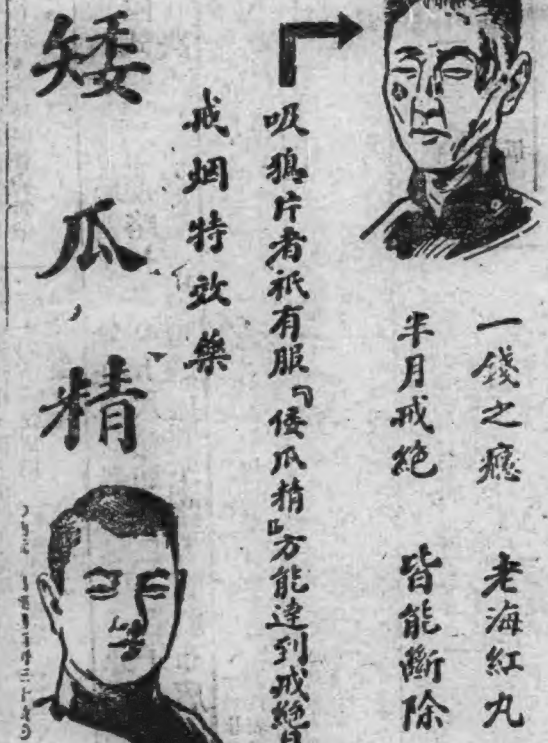 一錢之癮　老海紅丸
半月戒絕　皆能斷除
吸鴉片者祇有服『倭瓜精』方能達到戒絕目
戒烟特效藥
矮瓜精